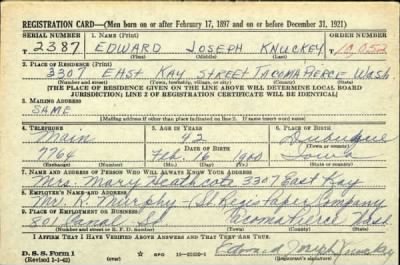 REGISTRATION CARD—(Men born on or after February 17, 1897 and on or before December 31, 1921)
SERIAL NUMBER 1. NAME (Print) ORDER NUMBER
T 2387 EDWARD JOSEPH KNUCKEY T10,052
(First) (Middle) (Last)
2. PLACE OF RESIDENCE (Print)
3307 EAST KAY STREET TACOMA PIERCE WASH
(Number and street) (Town, township, village, or city) (County) (State)
[THE PLACE OF RESIDENCE GIVEN ON THE LINE ABOVE WILL DETERMINE LOCAL BOARD
JURISDICTION; LINE 2 OF REGISTRATION CERTIFICATE WILL BE IDENTICAL]
3. MAILING ADDRESS
SAME
[Mailing address if other than place indicated on line 2. If same insert word same]
4. TELEPHONE 5. AGE IN YEARS 6. PLACE OF BIRTH
Main 42 Dubuque
DATE OF BIRTH (Town or county)
7764 Feb. 16 1900 Iowa
(Exchange) (Number) (Mo.) (Day) (Yr.) (State or country)
7. NAME AND ADDRESS OF PERSON WHO WILL ALWAYS KNOW YOUR ADDRESS
Mrs. Mary Heathcote 3307 East Kay
8. EMPLOYER'S NAME AND ADDRESS
Mr. R. Murphy - St. Regis Paper Company
9. PLACE OF EMPLOYMENT OR BUSINESS
801 Canal St Tacoma Pierce Wash
(Number and street or R. F. D. number) (Town) (County) (State)
I AFFIRM THAT I HAVE VERIFIED ABOVE ANSWERS AND THAT THEY ARE TRUE.
D. S. S. Form 1 GPO
(Revised 1-1-42) Edward Joseph Knuckey